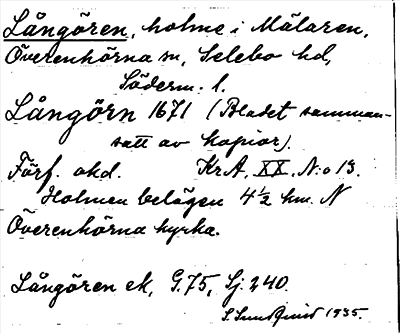 Långören, holme i Mälaren,
Överenhörna sn, Selebo hd,
Söderm. l.
Långörn 1671 (Bladet samman-
satt av kopior).
Förf. okd. Kr.A, XX, N:o 13.
Holmen belägen 4 1/2 km. N
Överenhörna kyrka.
Långören ek, G.75, Sj. 240.
S. Sundquist 1935.